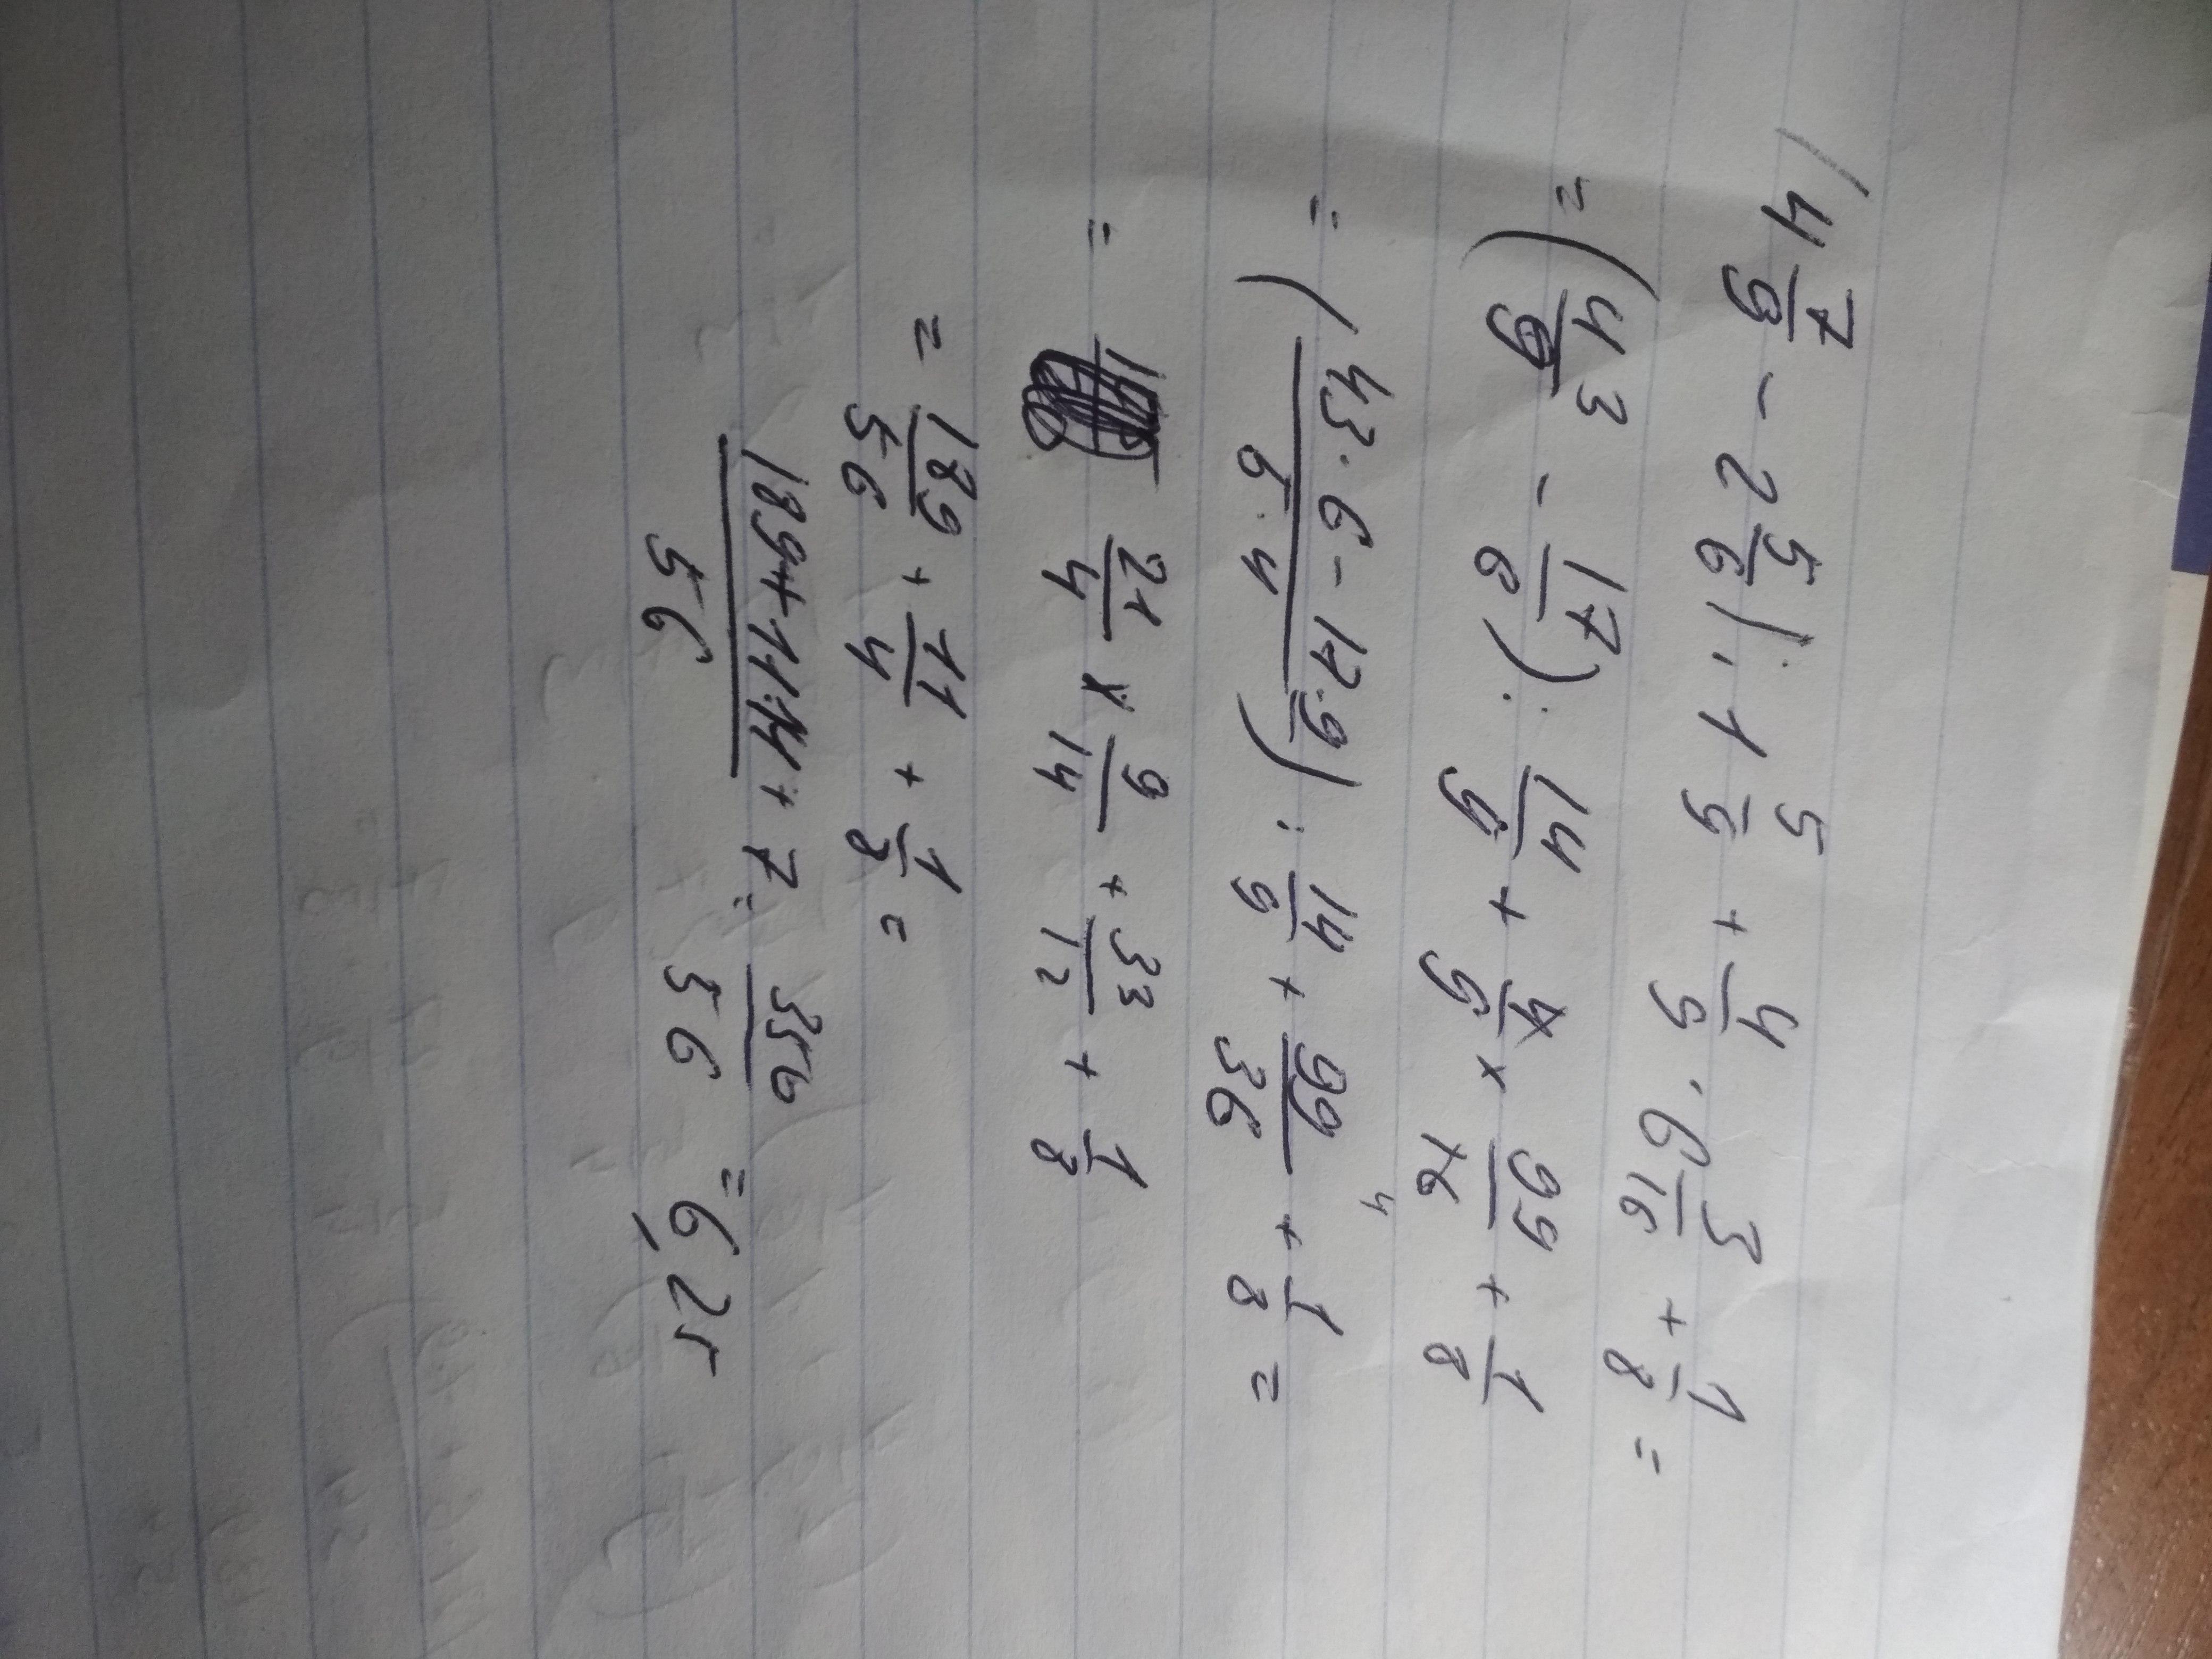 (4 7/9 - 2 5/6) : 1 5/9 + 4/9 · 6 3/16 + 1/8 =
= (43/9 - 17/6) : 14/9 + 4/9 × 99/16 + 1/8
= (43·6 - 17·9 / 6·4) : 14/9 + 99/36 + 1/8 =
= 21/4 × 9/14 + 33/12 + 1/8
= 189/56 + 11/4 + 1/8 =
189 + 11·14 + 7 / 56 = 350/56 = 6,25